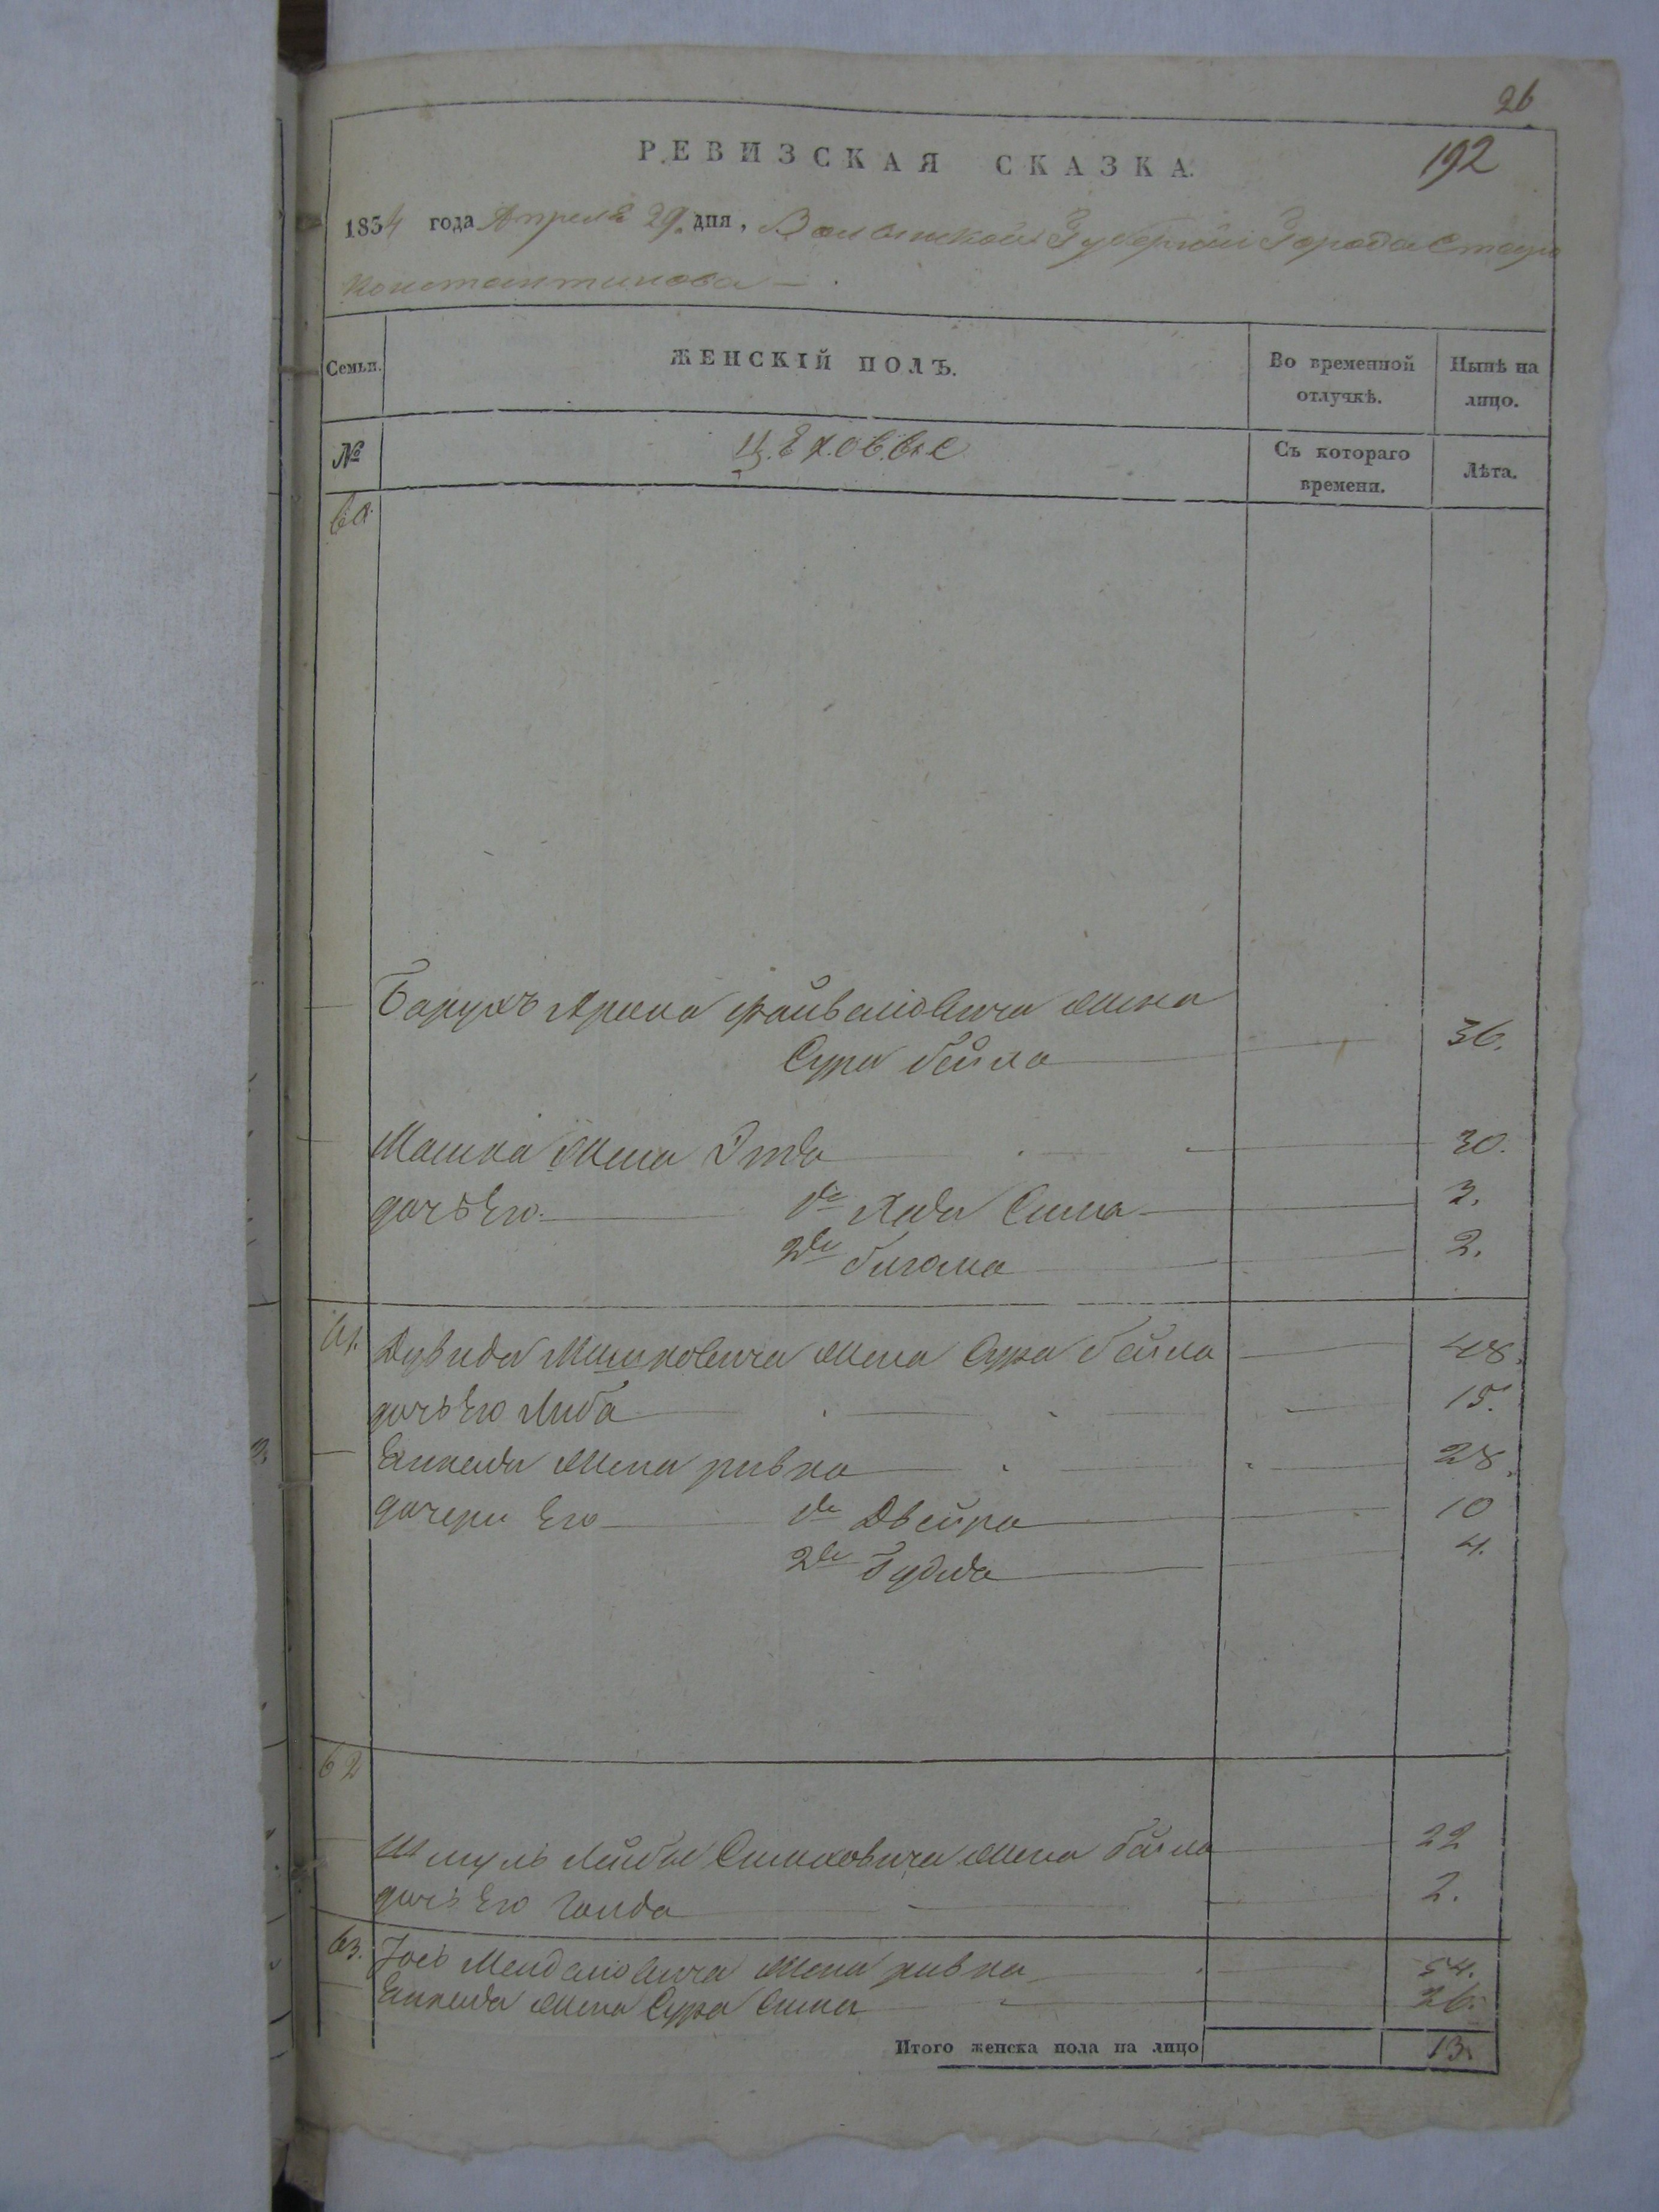 26
192
РЕВИЗСКАЯ СКАЗКА.
1854 года Апреля 29 дня, Волынской Губернии Города Старо
константинова
Семьи. ЖЕНСКІЙ ПОЛЪ. Во временной отлучкѣ. Нынѣ на лицо.
№ Цеховые Съ котораго времени. Лѣта.
60.
Барухъ Арона Файвелiовича жена
Сура бейла 36.
Машка жена Этля 30.
дочь Его 1я Хая Сима 3.
2я 2.
61. Дувида Мошковича жена Сура бейла 48.
дочь Его Либа 15.
жена ривка 28.
дочери Его 1я Двейра 10
2я 4.
62
Шмуль Лейбы жена бейла 22
дочь Его Голда 2.
63. Iось Менделiовича жена ривка 54.
жена Сура Сима 26.
Итого женска пола на лицо 13.